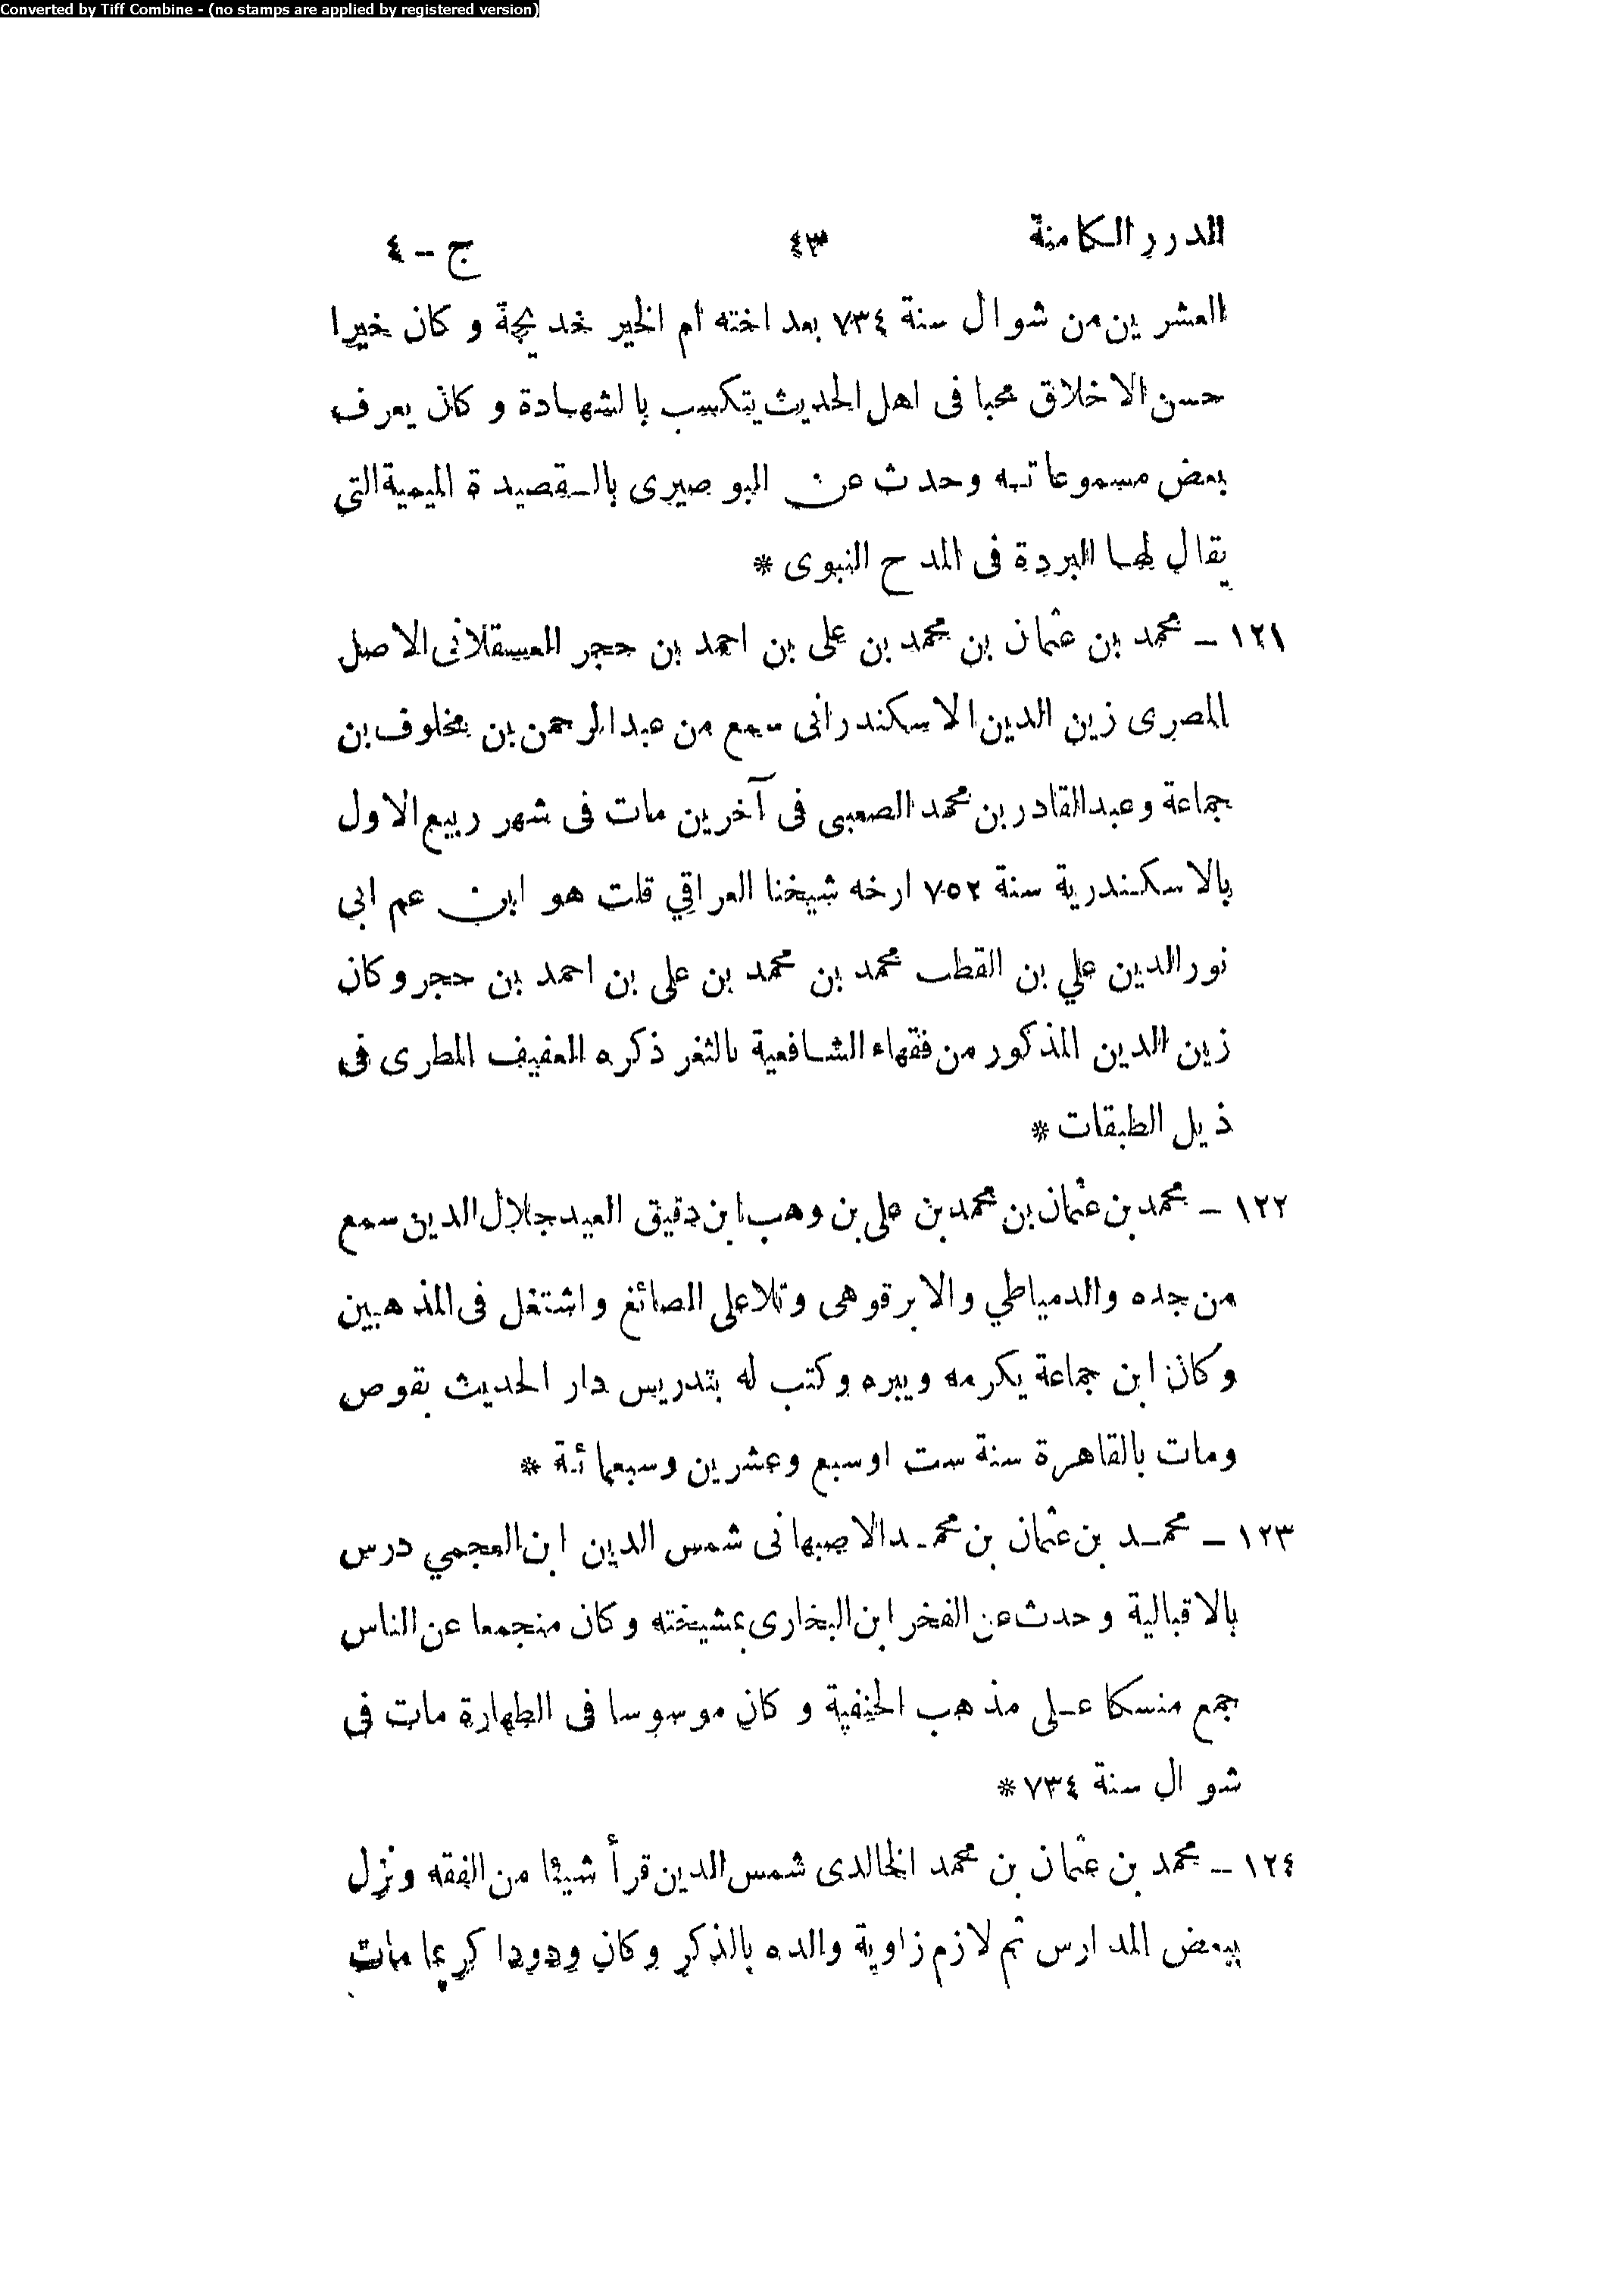 Converted by Tiff Combine - (no stamps are applied by registered version)
الدرر الكامنة ٤٣ ج - ٤
العشرين من شوال سنة ٧٣٤ بعد اخته ام الخير خديجة وكان خيرا
حسن الاخلاق محبا فى اهل الحديث يتكسب بالشهادة وكان يعرف
بعض مسموعاته وحدث عن البوصيرى بالقصيدة الميمية التى
يقال لها البردة فى المدح النبوى *
١٢١ - محمد بن عثمان بن محمد بن على بن احمد بن حجر العسقلانى الاصل
المصرى زين الدين الاسكندرانى سمع من عبد الرحمن بن مخلوف بن
جماعة وعبد القادر بن محمد الصعبى فى آخرين مات فى شهر ربيع الاول
بالاسكندرية سنة ٧٥٢ ارخه شيخنا العراقي قلت هو ابن عم ابى
نور الدين علي بن القطب محمد بن محمد بن على بن احمد بن حجر وكان
زين الدين المذكور من فقهاء الشافعية بالثغر ذكره العفيف المطرى فى
ذيل الطبقات *
١٢٢ - محمد بن عثمان بن محمد بن على بن وهب ابن دقيق العيد جلال الدين سمع
من جده والدمياطي والابرقوهى وتلا على الصائغ واشتغل فى المذهبين
وكان ابن جماعة يكرمه ويبره وكتب له بتدريس دار الحديث بقوص
ومات بالقاهرة سنة ست اوسبع وعشرين وسبعمائة *
١٢٣ - محمد بن عثمان بن محمد الاصبهانى شمس الدين ابن العجمي درس
بالاقبالية وحدث عن الفخر ابن البخارى بمشيخته وكان منجمعا عن الناس
جمع منسكا على مذهب الحنفية وكان موسوسا فى الطهارة مات فى
شوال سنة ٧٣٤ *
١٢٤ - محمد بن عثمان بن محمد الخالدى شمس الدين قرأ شيئا من الفقه ونزل
ببعض المدارس ثم لازم زاوية والده بالذكر وكان ودودا كريما مات